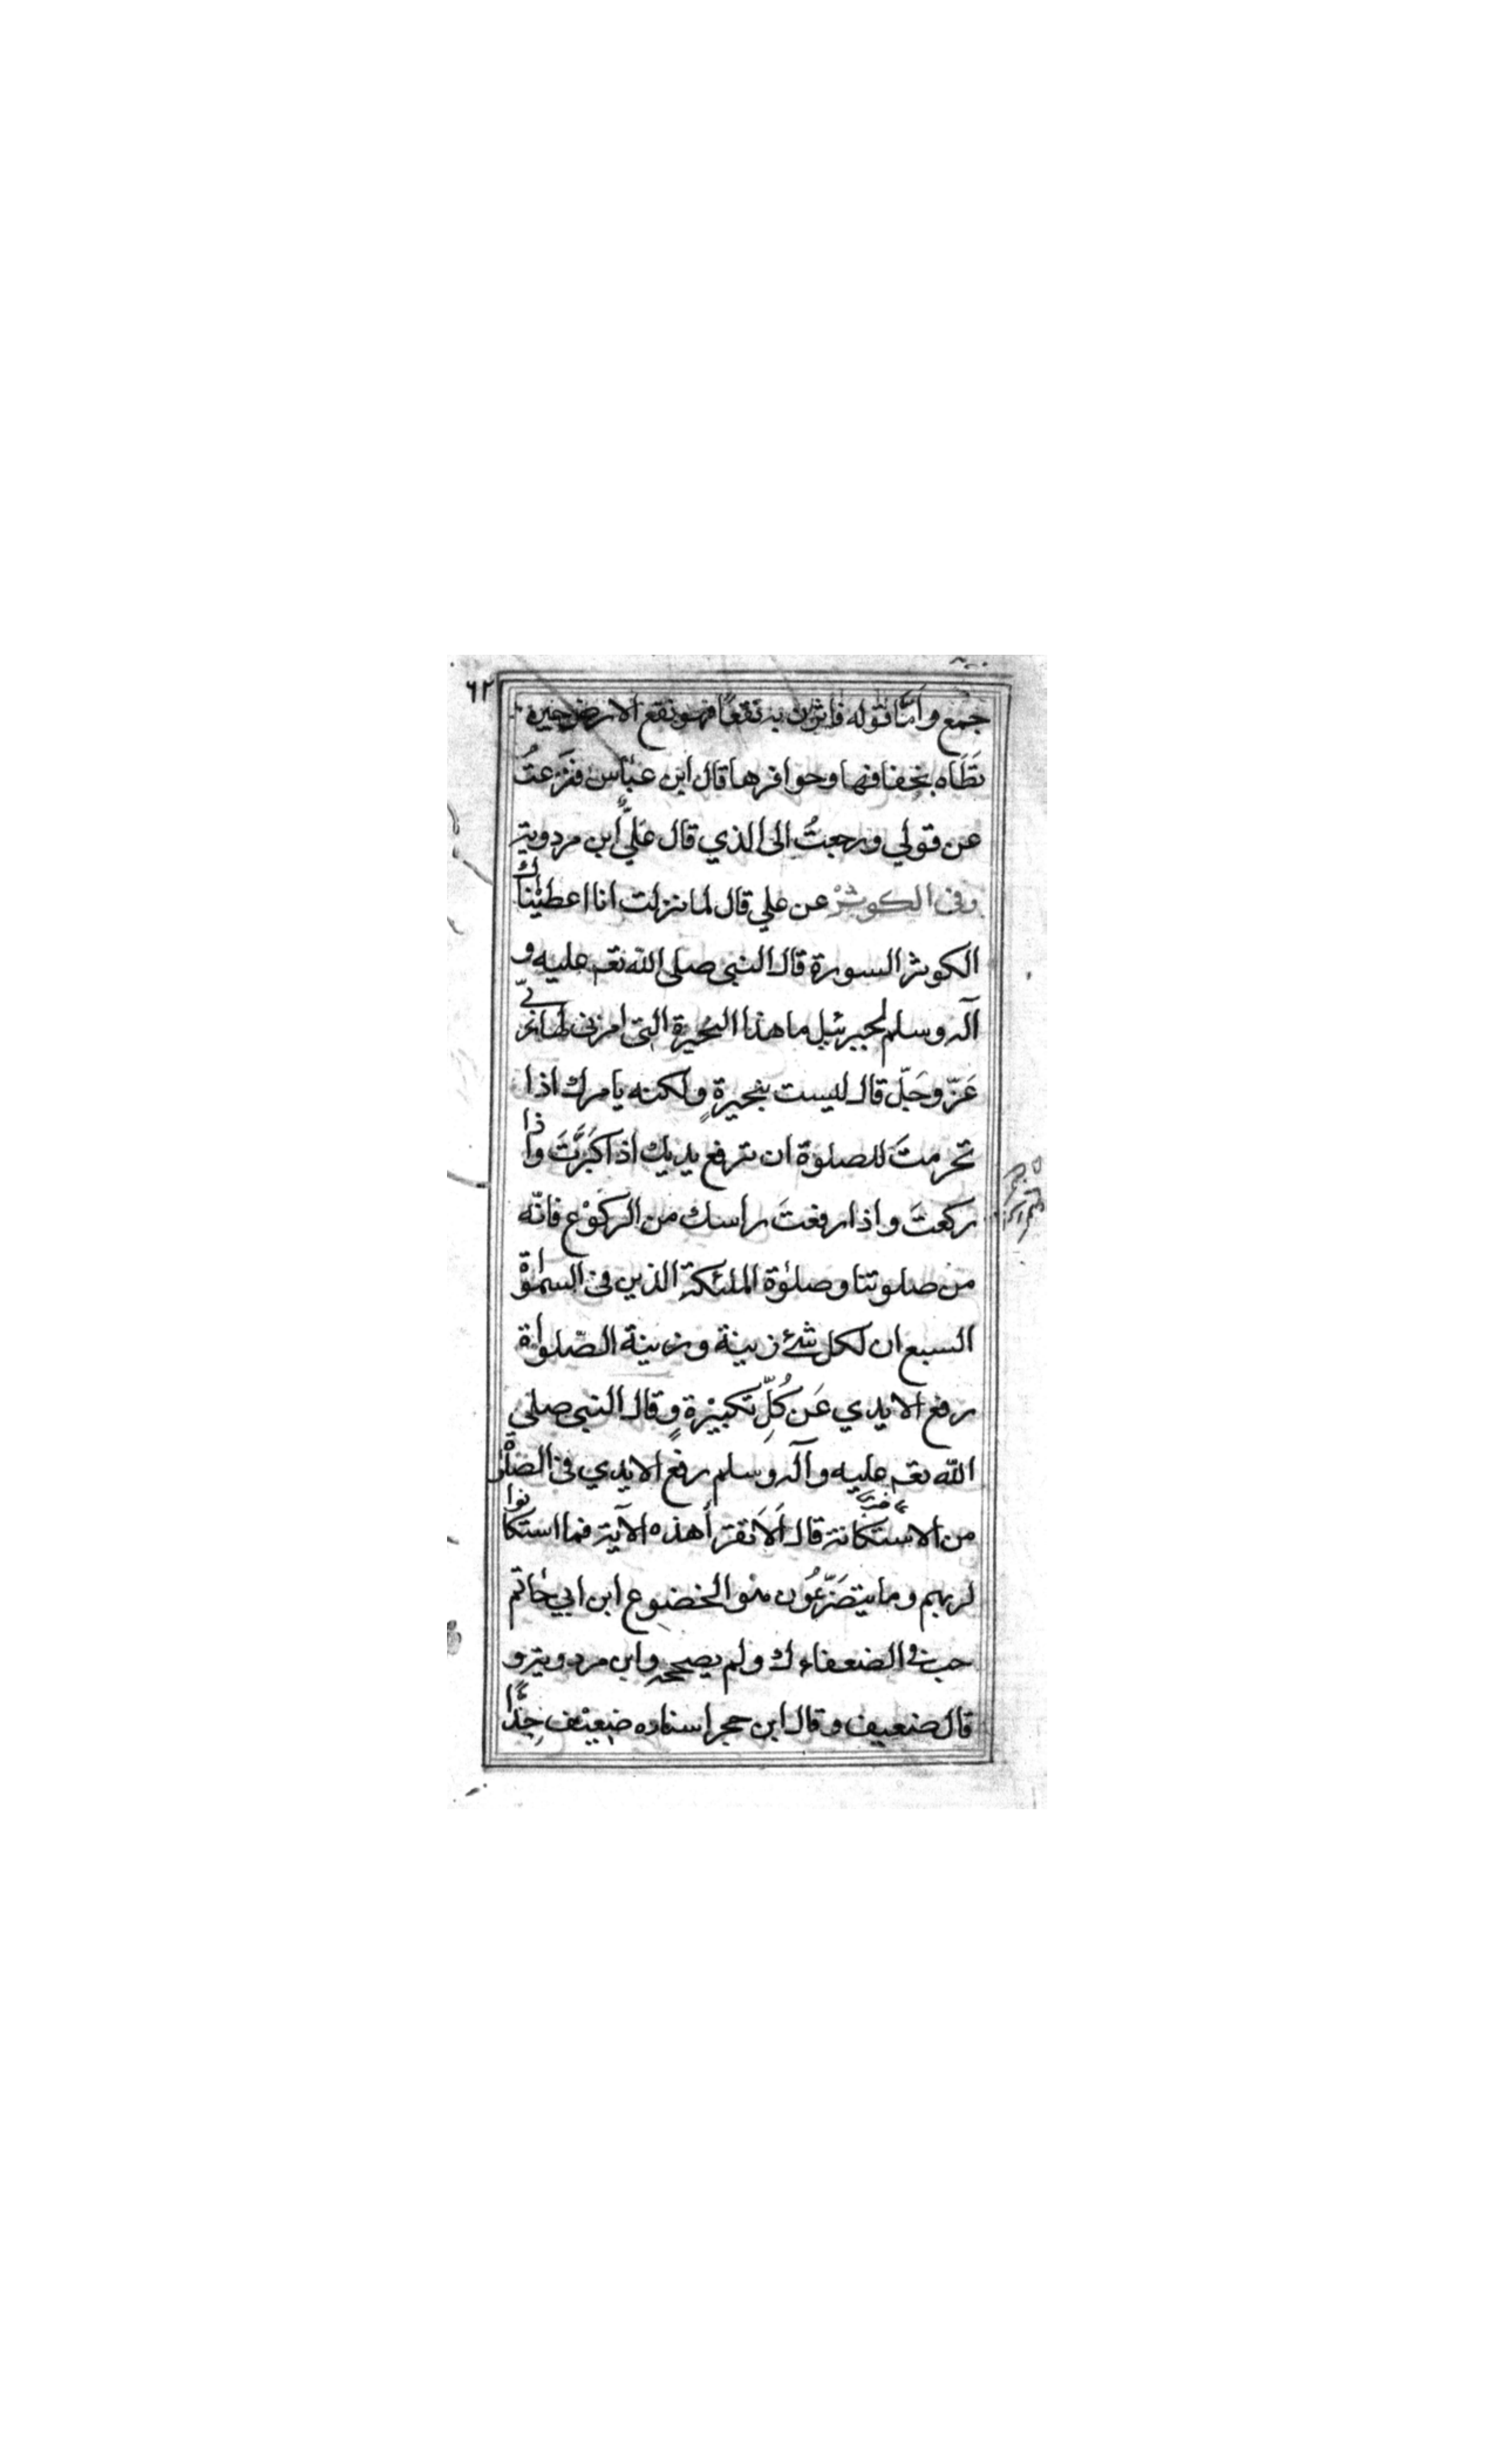 ٦٢
جمع وأمّا قوله فاثرن به نقعًا فهو نقع الارض حين
تَطَاه بخفافها وحوافرها قال ابن عبّاس فنزعتُ
عن قولي ورجعتُ الى الذي قال عليٌّ ابن مردوية
وفي الكوثر عن علي قال لما نزلت انا اعطيناك
الكوثر السورة قال النبي صلى الله تع عليه و
آله وسلم لجبرئيل ما هذا النحيرة التي امرني بها ربي
عَزّ وجَلّ قال ليست بنحيرةٍ ولكنه يامرك اذا
تحرمتَ للصلوة ان ترفع يديك اذا كبَّرتَ واذا
ركعتَ واذا رفعتَ راسك من الركوْع فانّه
من صلوتنا وصلوة الملئكة الذين في السموات
السبع ان لكل شئ زينة وزينة الصّلواة
رفع الايدي عَن كُلِّ تكبيْرةٍ وقال النبي صلي
الله تع عليه وآله وسلم رفع الايدي في الصلوة
من الاستكانة قال أَلاَ تقرأ هذه الآية فما استكانوا
لربهم وما يتضَرّعُون هو الخضوع ابن ابي حاتم
حب في الضعفاء ك ولم يصححه وابن مردوية و
قال ضعيف وقال ابن حجر اسناده ضعيْف جِدًّا